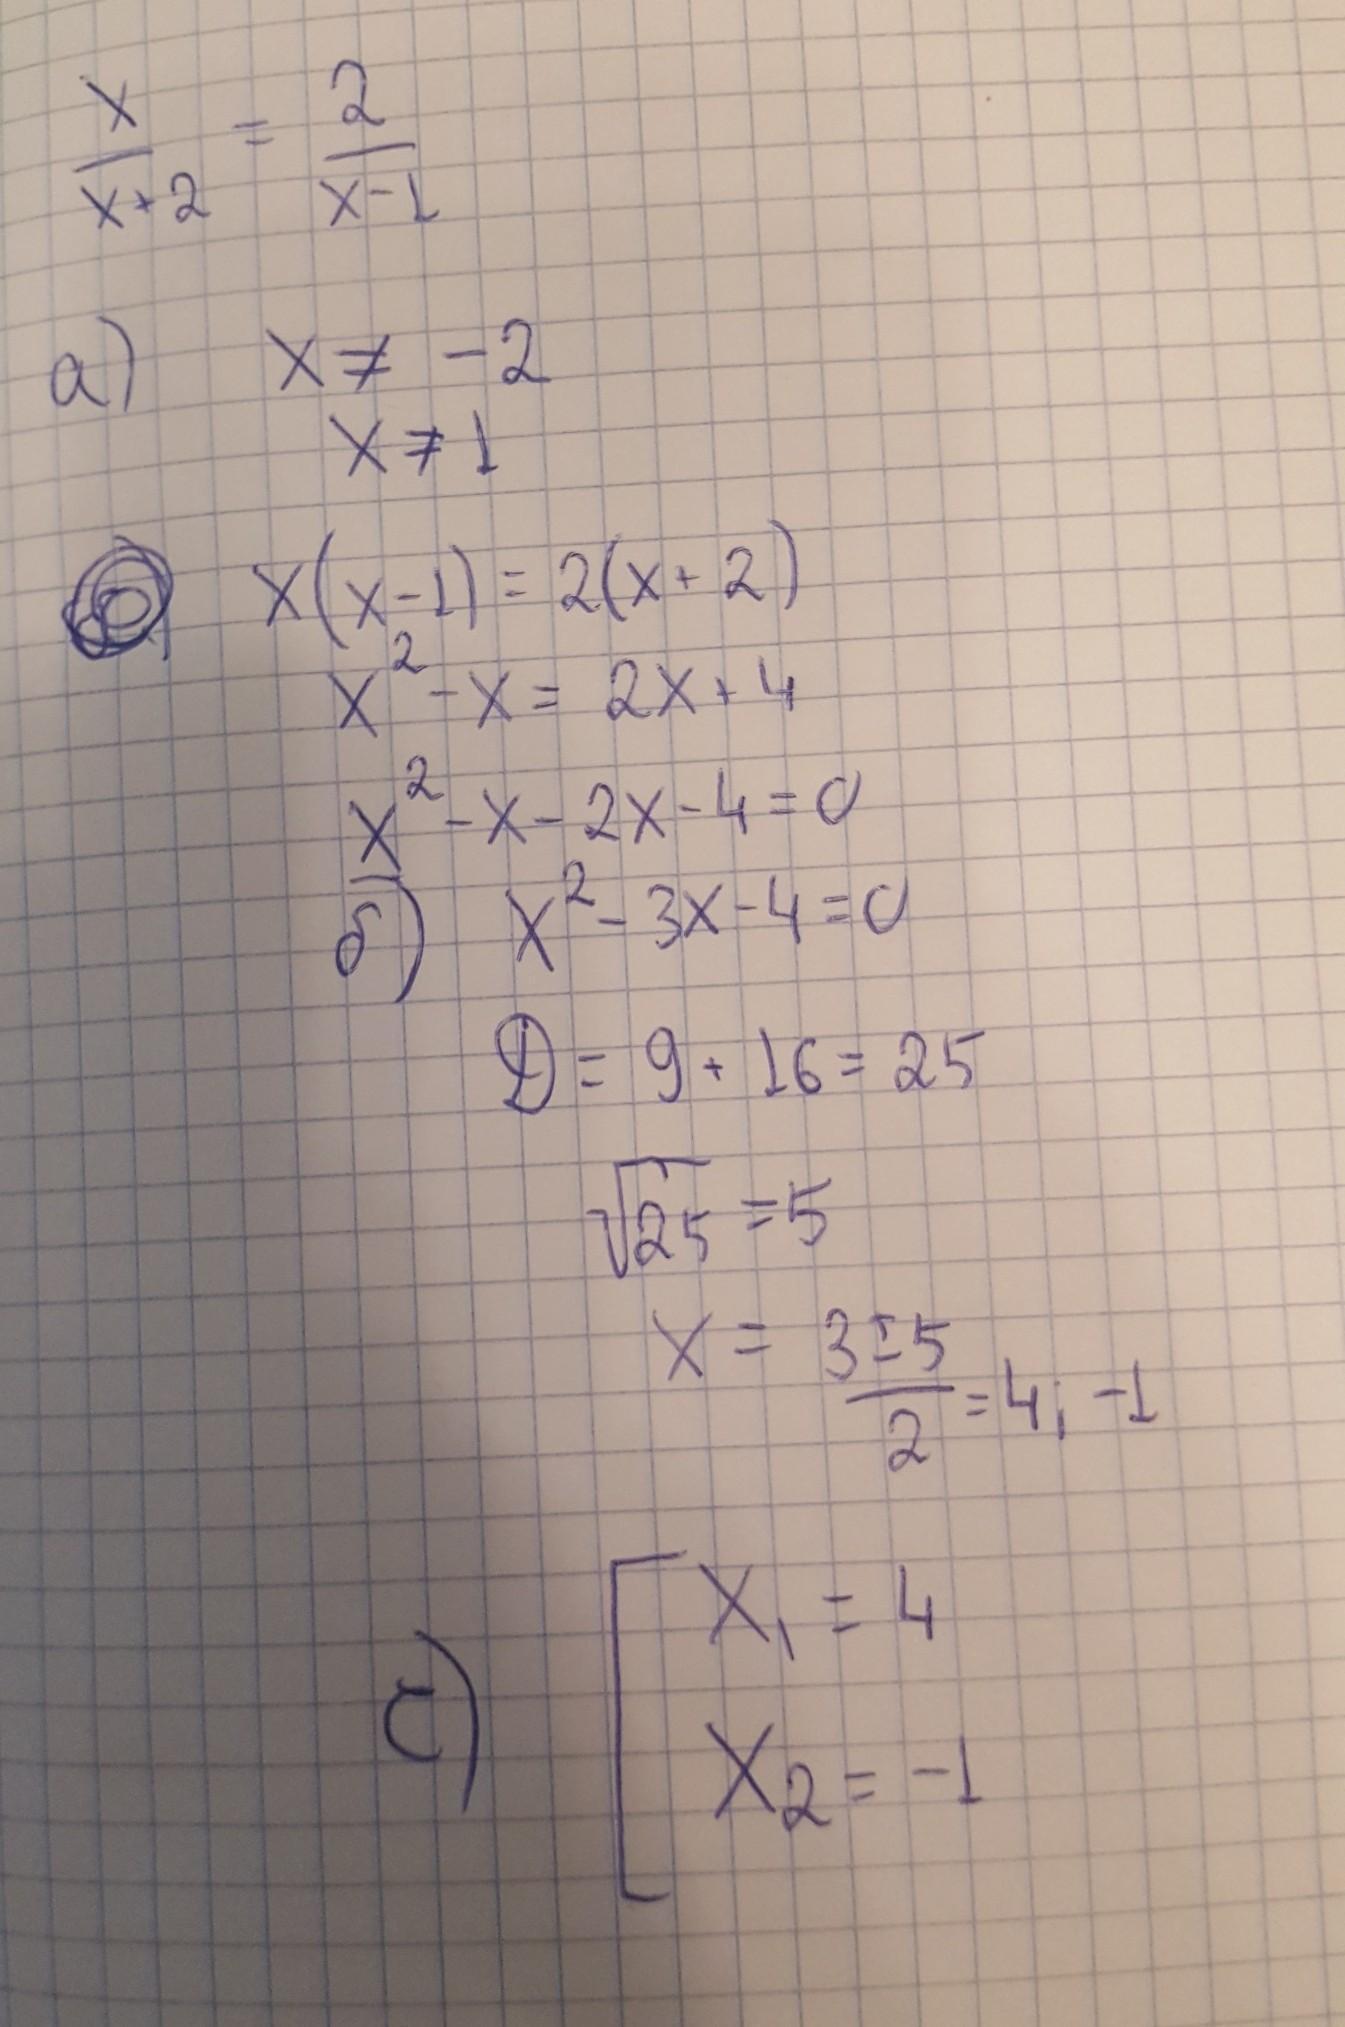 x/(x+2) = 2/(x-1)
а) x ≠ -2
x ≠ 1
x(x-1) = 2(x+2)
x² - x = 2x + 4
x² - x - 2x - 4 = 0
б) x² - 3x - 4 = 0
D = 9 + 16 = 25
√25 = 5
x = (3±5)/2 = 4; -1
с) [ x₁ = 4
x₂ = -1